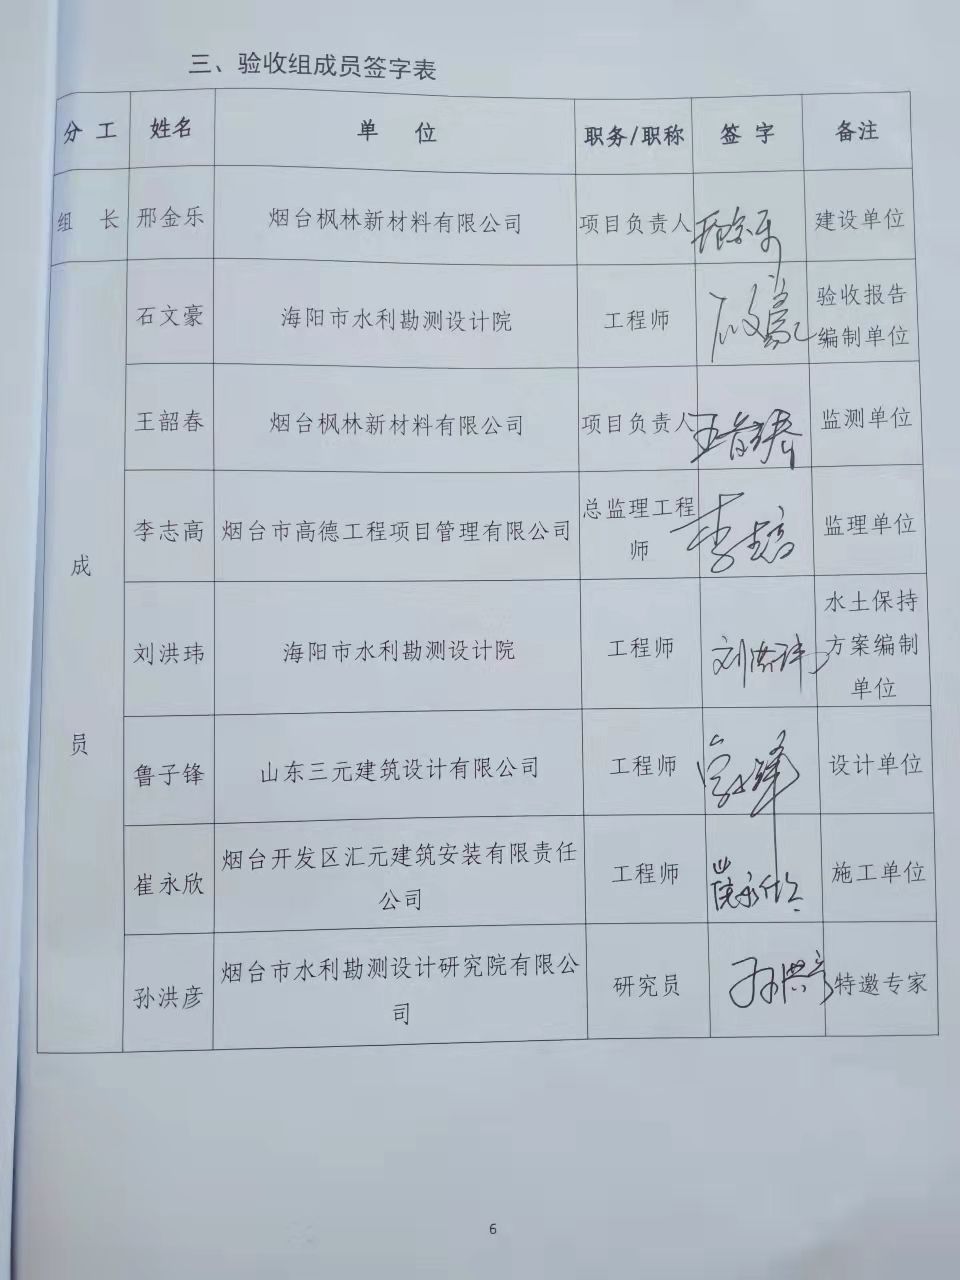 三、验收组成员签字表
分 工 姓名 单 位 职务/职称 签 字 备注
组 长 邢金乐 烟台枫林新材料有限公司 项目负责人 邢金乐 建设单位
成
员
石文豪 海阳市水利勘测设计院 工程师 石文豪 验收报告
编制单位
王韶春 烟台枫林新材料有限公司 项目负责人 王韶春 监测单位
李志高 烟台市高德工程项目管理有限公司 总监理工程
师 李志高 监理单位
刘洪玮 海阳市水利勘测设计院 工程师 刘洪玮 水土保持
方案编制
单位
鲁子锋 山东三元建筑设计有限公司 工程师 设计单位
崔永欣 烟台开发区汇元建筑安装有限责任
公司 工程师 崔永欣 施工单位
孙洪彦 烟台市水利勘测设计研究院有限公
司 研究员 孙洪彦 特邀专家
6